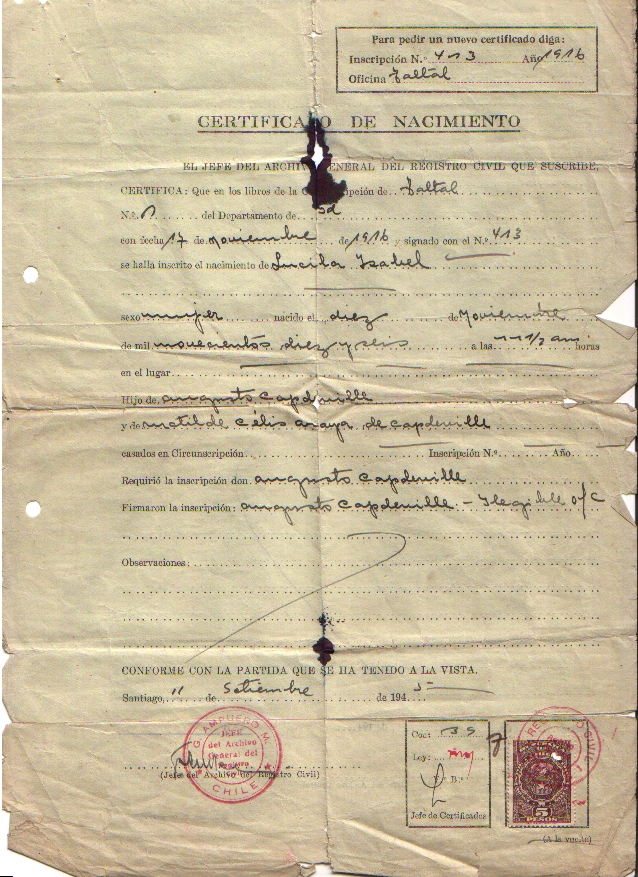 Para pedir un nuevo certificado diga:
Inscripción N.º 413 Año 1916
Oficina Taltal
CERTIFICADO DE NACIMIENTO
EL JEFE DEL ARCHIVO GENERAL DEL REGISTRO CIVIL QUE SUSCRIBE,
CERTIFICA: Que en los libros de la Circunscripción de Taltal
N.º 1 del Departamento de id
con fecha 17 de noviembre de 1916 y signado con el N.º 413
se halla inscrito el nacimiento de Lucila Isabel
sexo mujer nacido el diez de Noviembre
de mil novecientos diez y seis a las 11 1/2 am horas
en el lugar
Hijo de augusto Capdeville
y de matilde Celis araya de Capdeville
casados en Circunscripción Inscripción N.º Año
Requirió la inscripción don augusto Capdeville
Firmaron la inscripción: augusto Capdeville - Ilegible o/c
Observaciones:
CONFORME CON LA PARTIDA QUE SE HA TENIDO A LA VISTA.
Santiago, 11 de Setiembre de 1945
G. AMPUERO M.
JEFE
del Archivo
General del
Registro
CHILE
(Jefe del Archivo del Registro Civil)
Coc:
Ley:
V. B.º
Jefe de Certificados
REGISTRO CIVIL
5
PESOS
(A la vuelta)